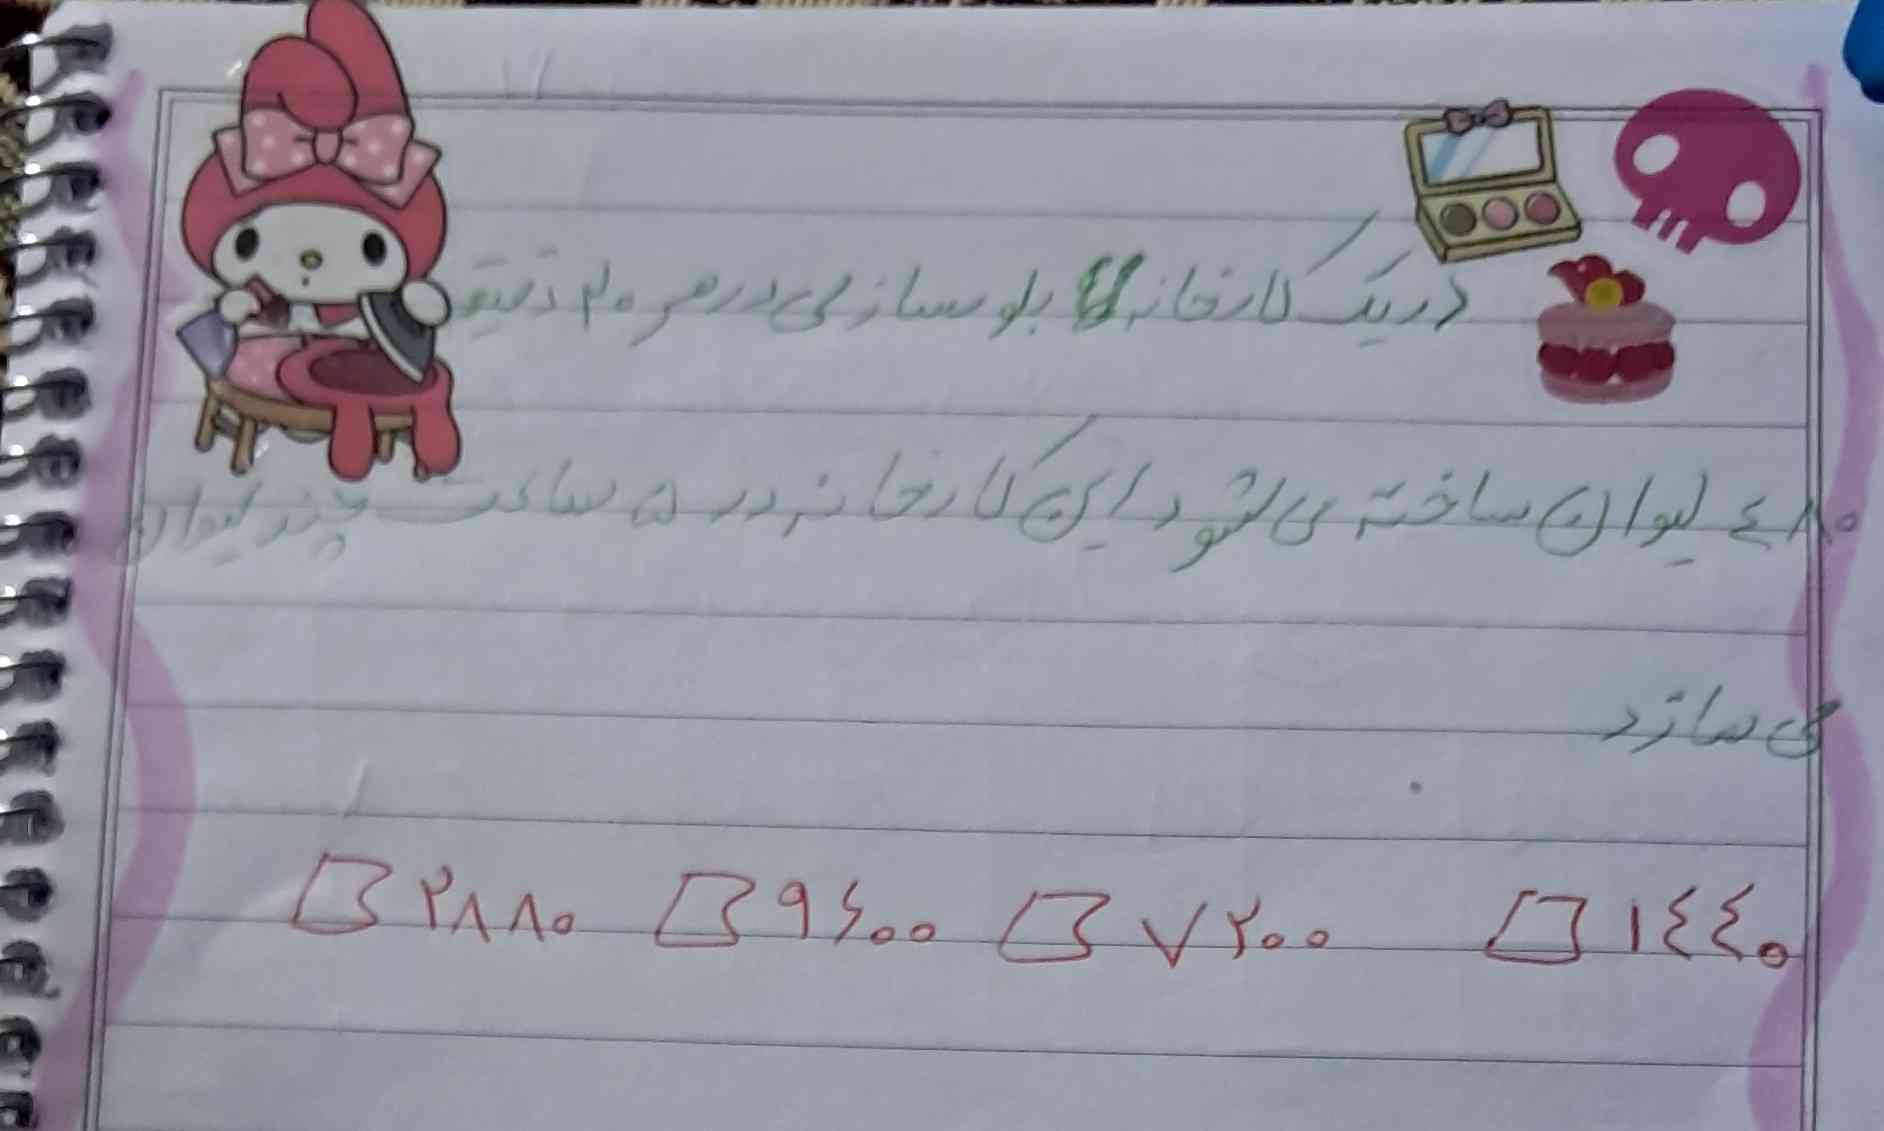 در یک کارخانه بلور سازی در هر ۲۰ دقیقه
۴۸۰ لیوان ساخته می شود این کارخانه در ۵ ساعت چند لیوان
می سازد
۱۴۴۰ ۷۲۰۰ ۹۶۰۰ ۲۸۸۰